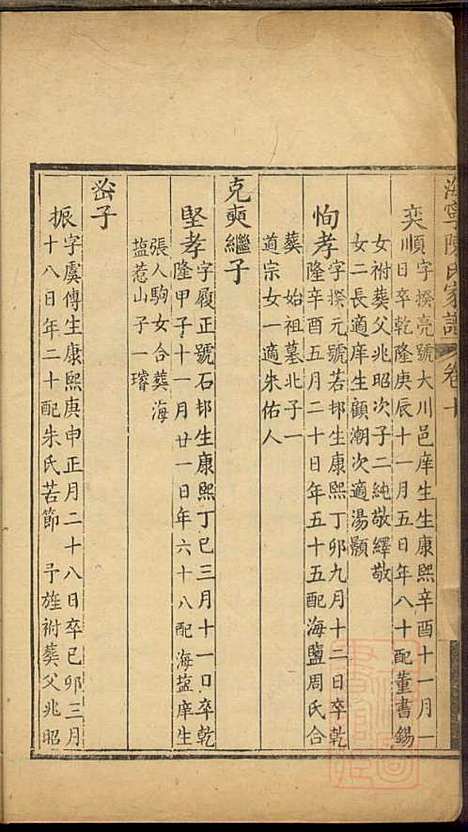 海寧陳氏家譜 卷十
奕順 字揆亮號大川邑庠生生康熙辛酉十一月一
日卒乾隆庚辰十一月五日年八十配董書錫
女祔葬父兆昭次子二純敬繹敬
女二長適庠生顧潮次適湯顥
恂孝 字揆元號若邨生康熙丁卯九月十二日卒乾
隆辛酉五月二十日年五十五配海鹽周氏合
葬 始祖墓北子一
道宗女一適朱佑人
克奭繼子
堅孝 字履正號石邨生康熙丁巳三月十一日卒乾
隆甲子十一月廿一日年六十八配海盐庠生
張人駒女合葬海
盐惹山子一璿
嵤子
振 字虞傳生康熙庚申正月二十八日卒己卯三月
十八日年二十配朱氏苦節 予旌祔葬父兆昭